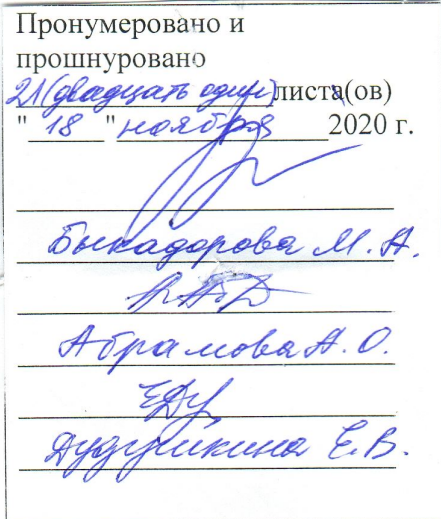 Пронумеровано и
прошнуровано
21(двадцать один) листа(ов)
"18" ноября 2020 г.
Быкадорова М. А.
Абрамова А. О.
Дудушкина Е. В.